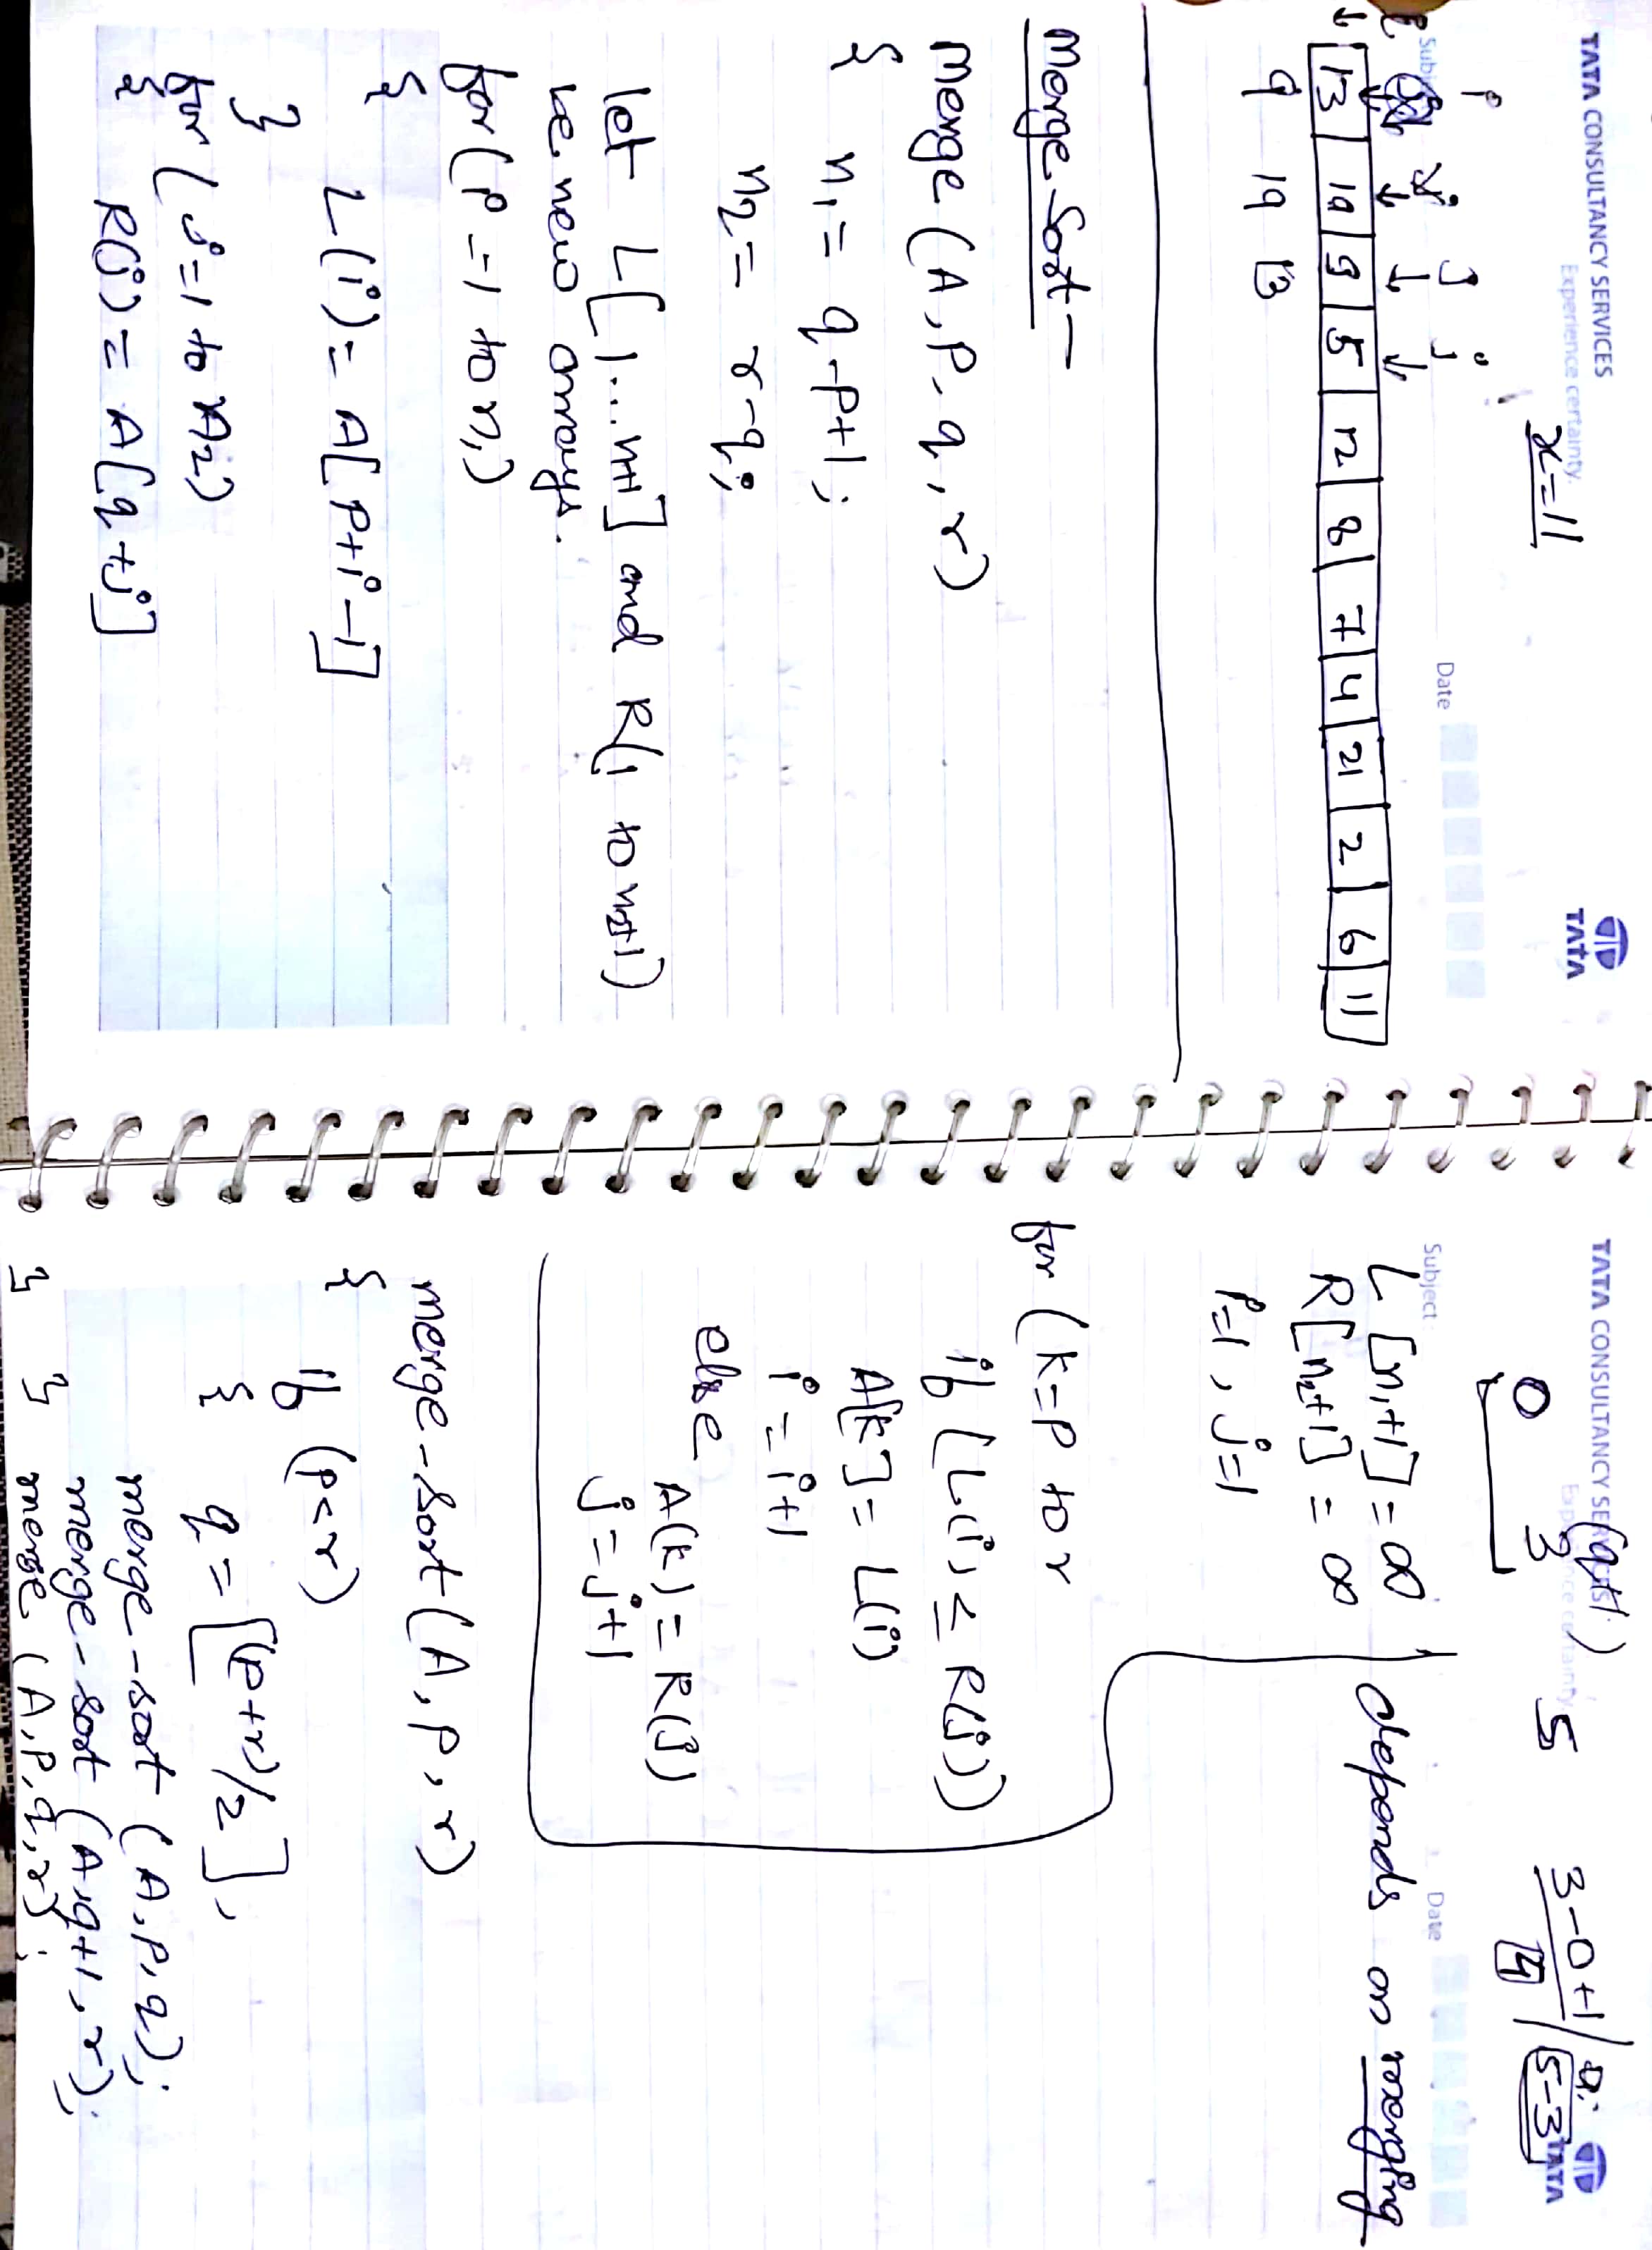 TATA CONSULTANCY SERVICES
Experience certainty.
TATA
x=11
Subject
Date
i j j j
13 19 9 5 12 8 7 4 21 2 6 11
9 19 13
Merge-Sort —
Merge (A, P, q, r)
{
n1 = q - P+1;
n2 = r-q;
let L[1...n+1] and R(1 to n2+1)
be new arrays.
for (i = 1 to n1)
{
L(i) = A[P+i-1]
}
for (j=1 to n2)
{
R(j) = A[q+j]
TATA CONSULTANCY SERVICES
Experience certainty.
TATA
(q+1)
0 3 5
3-0+1 / 5-3
4
Subject:
Date
L[n1+1] = ∞
R[n2+1] = ∞
depends on merging
i=1, j=1
for (k=P to r
if (L(i) ≤ R(j))
A[k] = L(i)
i = i+1
else
A(k) = R(j)
j = j+1
merge-sort (A, P, r)
{
if (P<r)
{
q = [(P+r)/2],
merge-sort (A, P, q);
merge-sort (A, q+1, r);
} } merge (A, P, q, r);